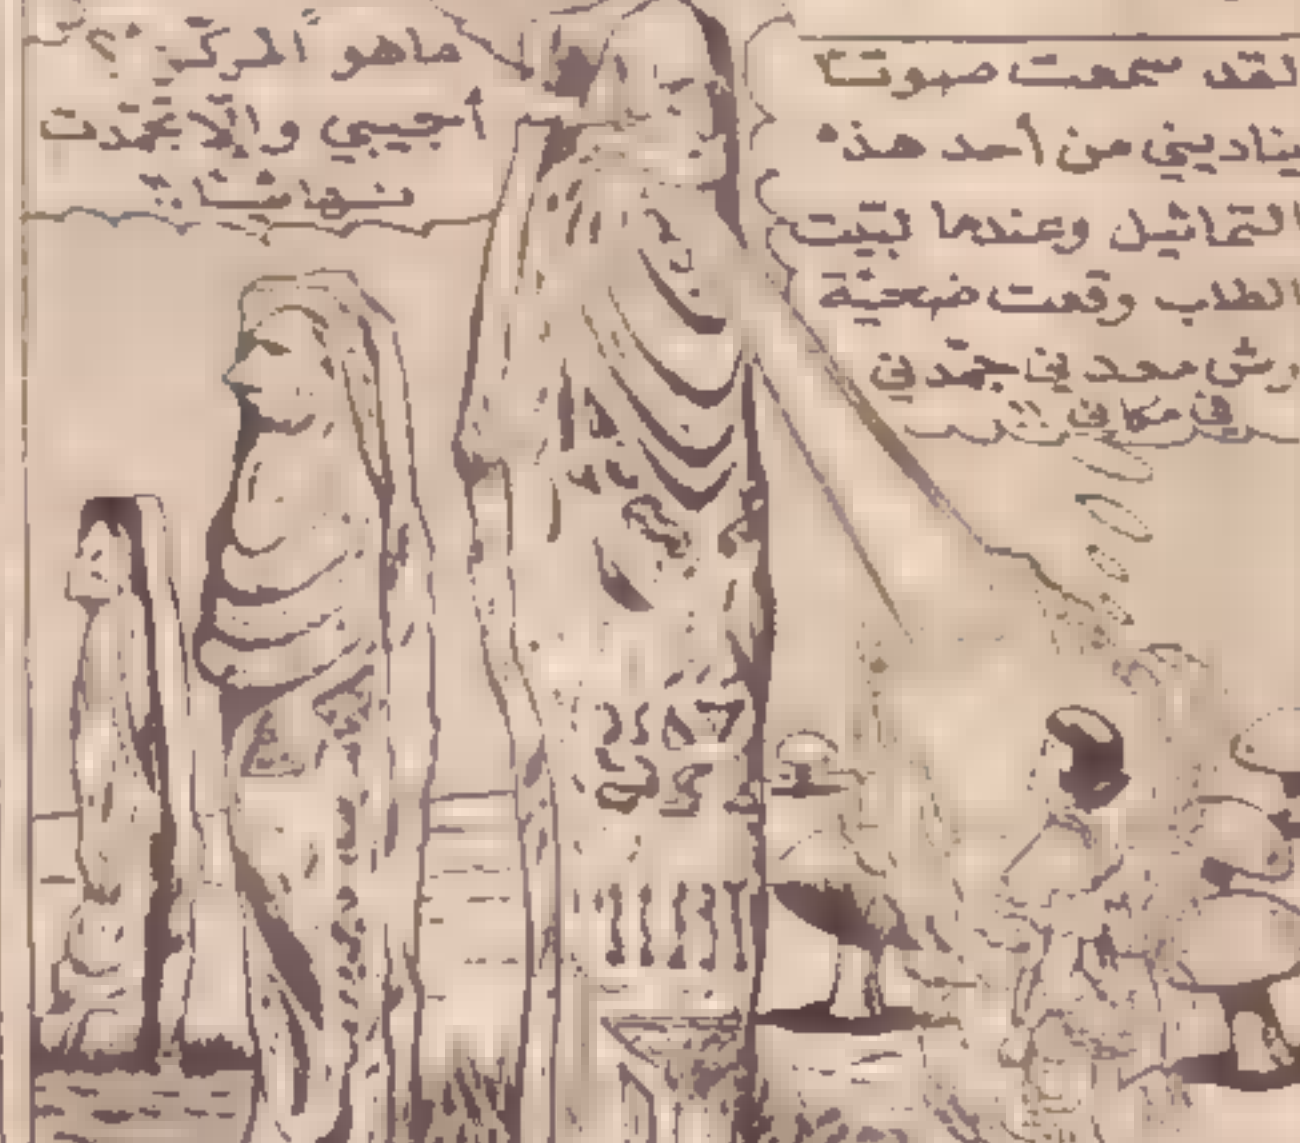 لقد سمعت صوتا
يناديني من أحد هذه
التماثيل وعندها لبّيت
الطلب وقعت ضحيّة
ورش معدني جمّدني
في مكاني !!
ماهو المركز ؟
أجيبي وإلا تجمّدت
نهائيا !!